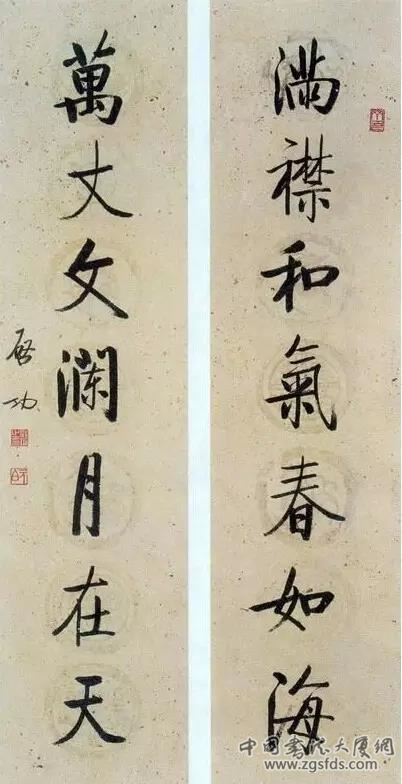 滿襟和氣春如海
萬丈文瀾月在天
啟功
中国书法大厦網
www.zgsfds.com